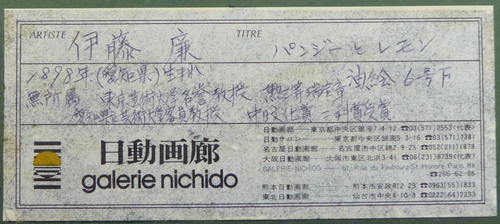 ARTISTE 伊藤 廉 TITRE パンジーとレモン
1898年(愛知県)生まれ
無所属 東京芸術大学名誉教授 勲三等瑞宝章 油絵 6号下
愛知県立芸術大学客員教授 中日文化賞 二科賞受賞
日動画廊
galerie nichido
日動画廊―東京都中央区銀座7-4-12 ☎03(571)2553(代表)
日動サロン―東京都中央区銀座5-3-16
名古屋日動画廊
大阪日動画廊―大阪市東区北浜3-41
GALERIE NICHIDO―61, Rue du Faubourg-St. Honoré Paris 8e
☎266-62-86
熊本日動画廊―熊本市安政町2-29 ☎0963(55)1833
東北日動画廊―仙台市中央4-10-3 ☎0222(64)7233